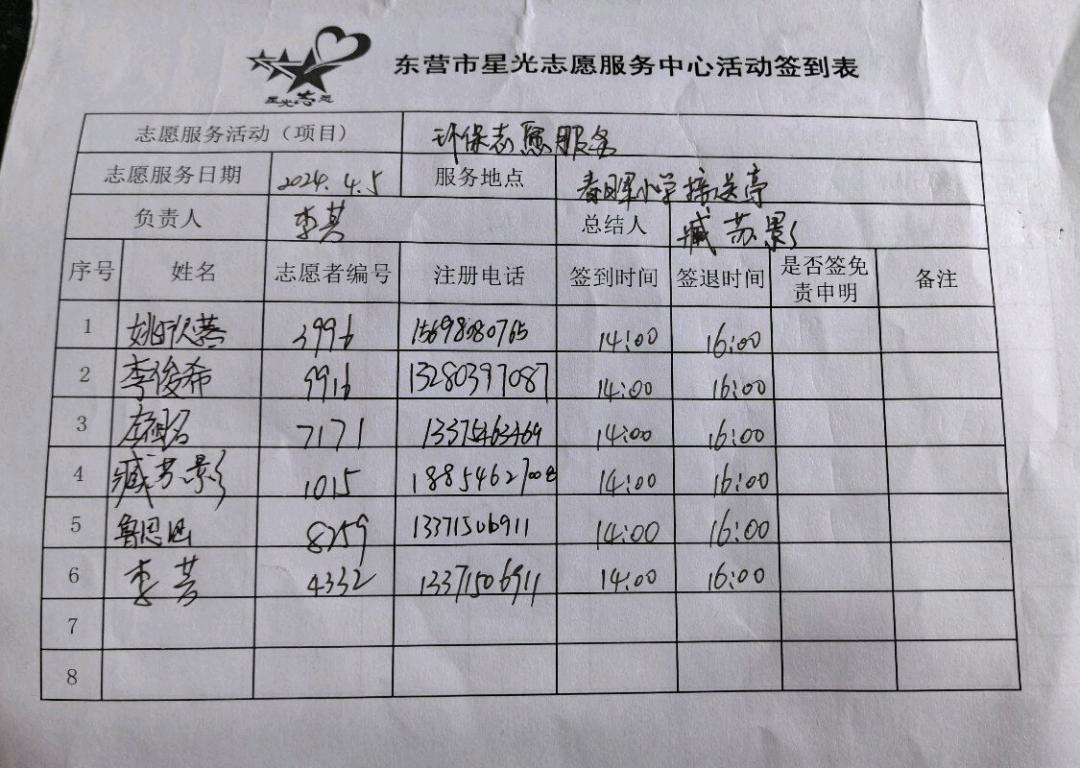 星光志愿
东营市星光志愿服务中心活动签到表
志愿服务活动（项目） 环保志愿服务
志愿服务日期 2024.4.5 服务地点 春晖小学接送亭
负责人 李芸 总结人 臧苏影
序号 姓名 志愿者编号 注册电话 签到时间 签退时间 是否签免责申明 备注
1 3996 15698080765 14:00 16:00
2 李俊希 9916 13280397087 14:00 16:00
3 7171 13375463469 14:00 16:00
4 臧苏影 1015 14:00 16:00
5 8259 13371506911 14:00 16:00
6 李芸 4332 13371506911 14:00 16:00
7
8